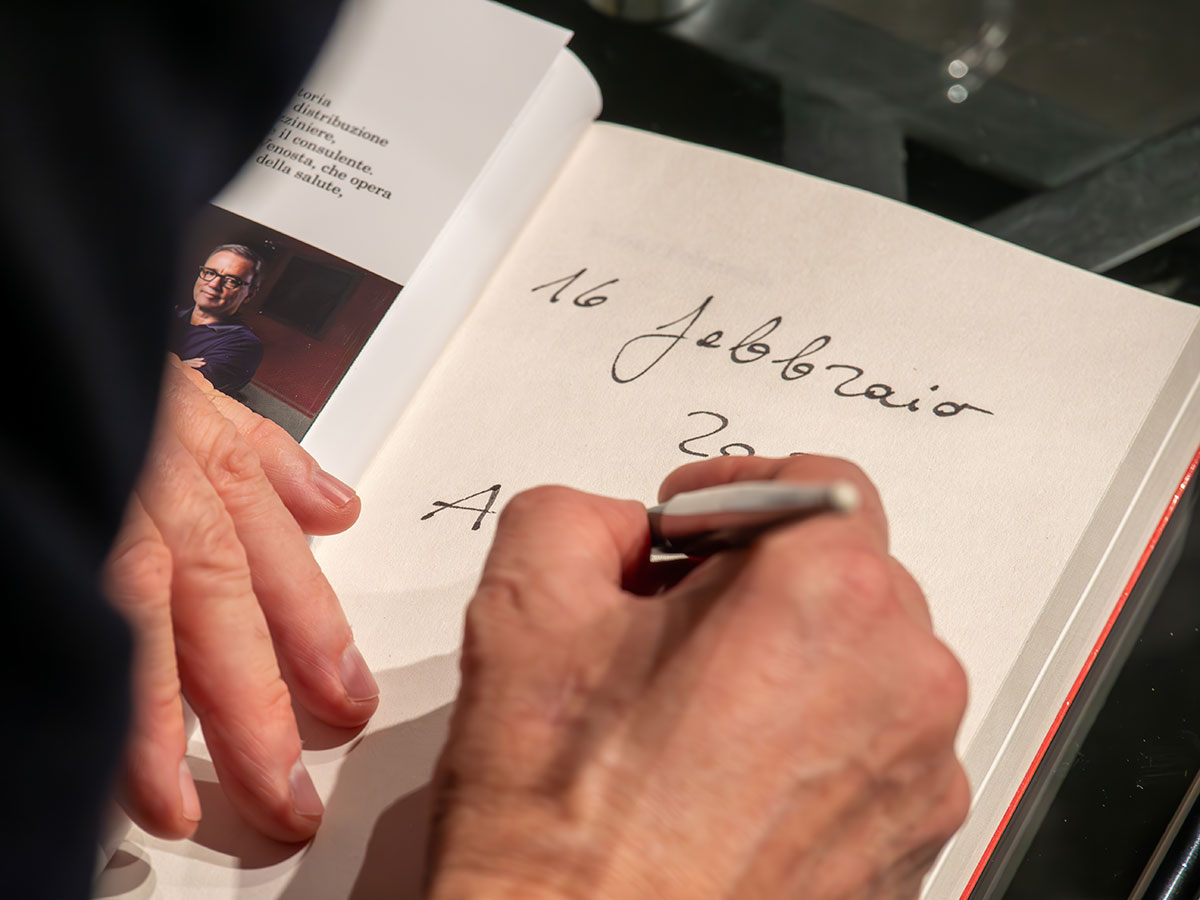 toria
distribuzione
zziniere,
il consulente.
Venosta, che opera
della salute,
16 febbraio
20
A